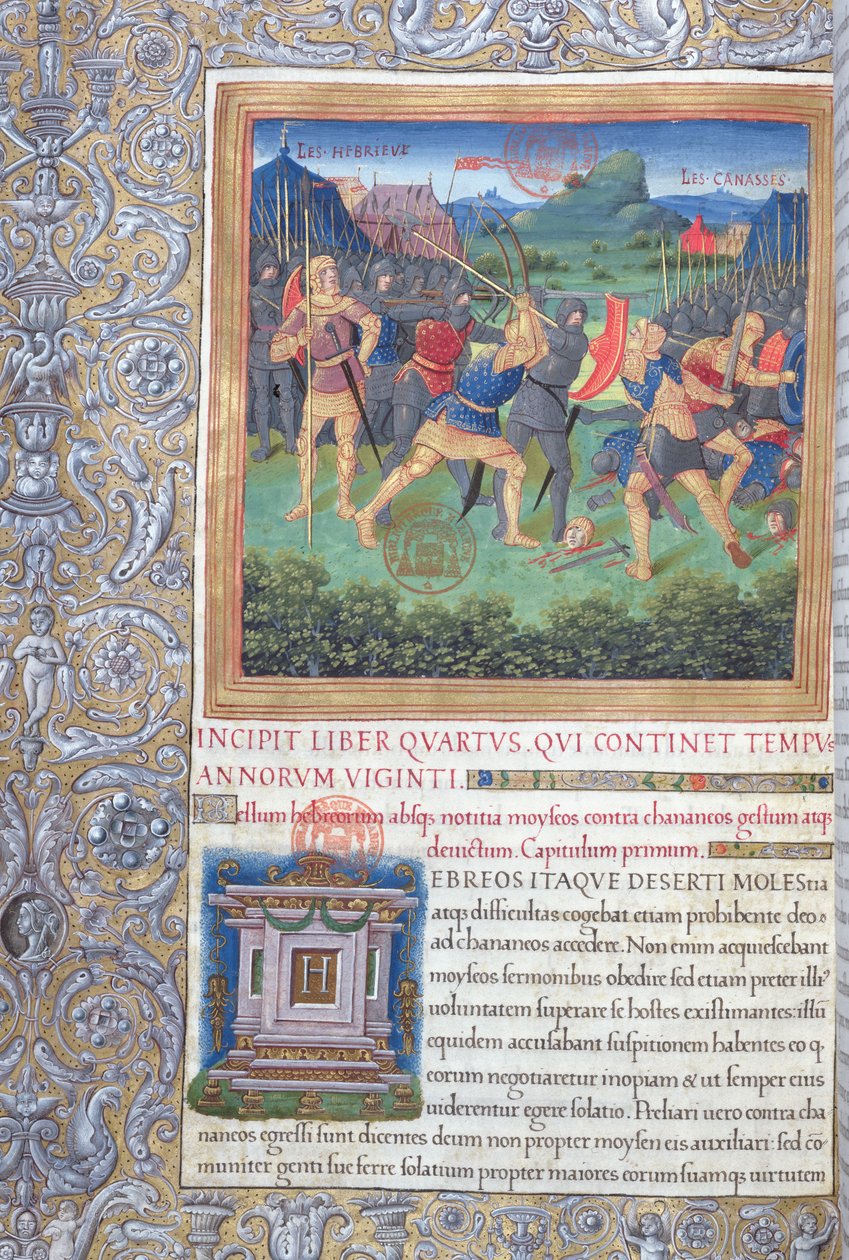 LES · HEBRIEVX
LES · CANASSES ·
INCIPIT LIBER QVARTVS. QVI CONTINET TEMPVS
ANNORVM VIGINTI.
Bellum hebreorum absq; notitia moyseos contra chananeos gestum atq;
deuictum. Capitulum primum.
H
EBREOS ITAQVE DESERTI MOLEStia
atq; difficultas cogebat etiam prohibente deo
ad chananeos accedere. Non enim acquiescebant
moyseos sermonibus obedire sed etiam preter illiꝰ
uoluntatem superare se hostes existimantes: illū
equidem accusabant suspitionem habentes eo q
eorum negotiaretur inopiam & ut semper eius
uiderentur egere solatio. Preliari uero contra cha
naneos egressi sunt dicentes deum non propter moysen eis auxiliari: sed cō
muniter genti sue ferre solatium propter maiores eorum suamq; uirtutem